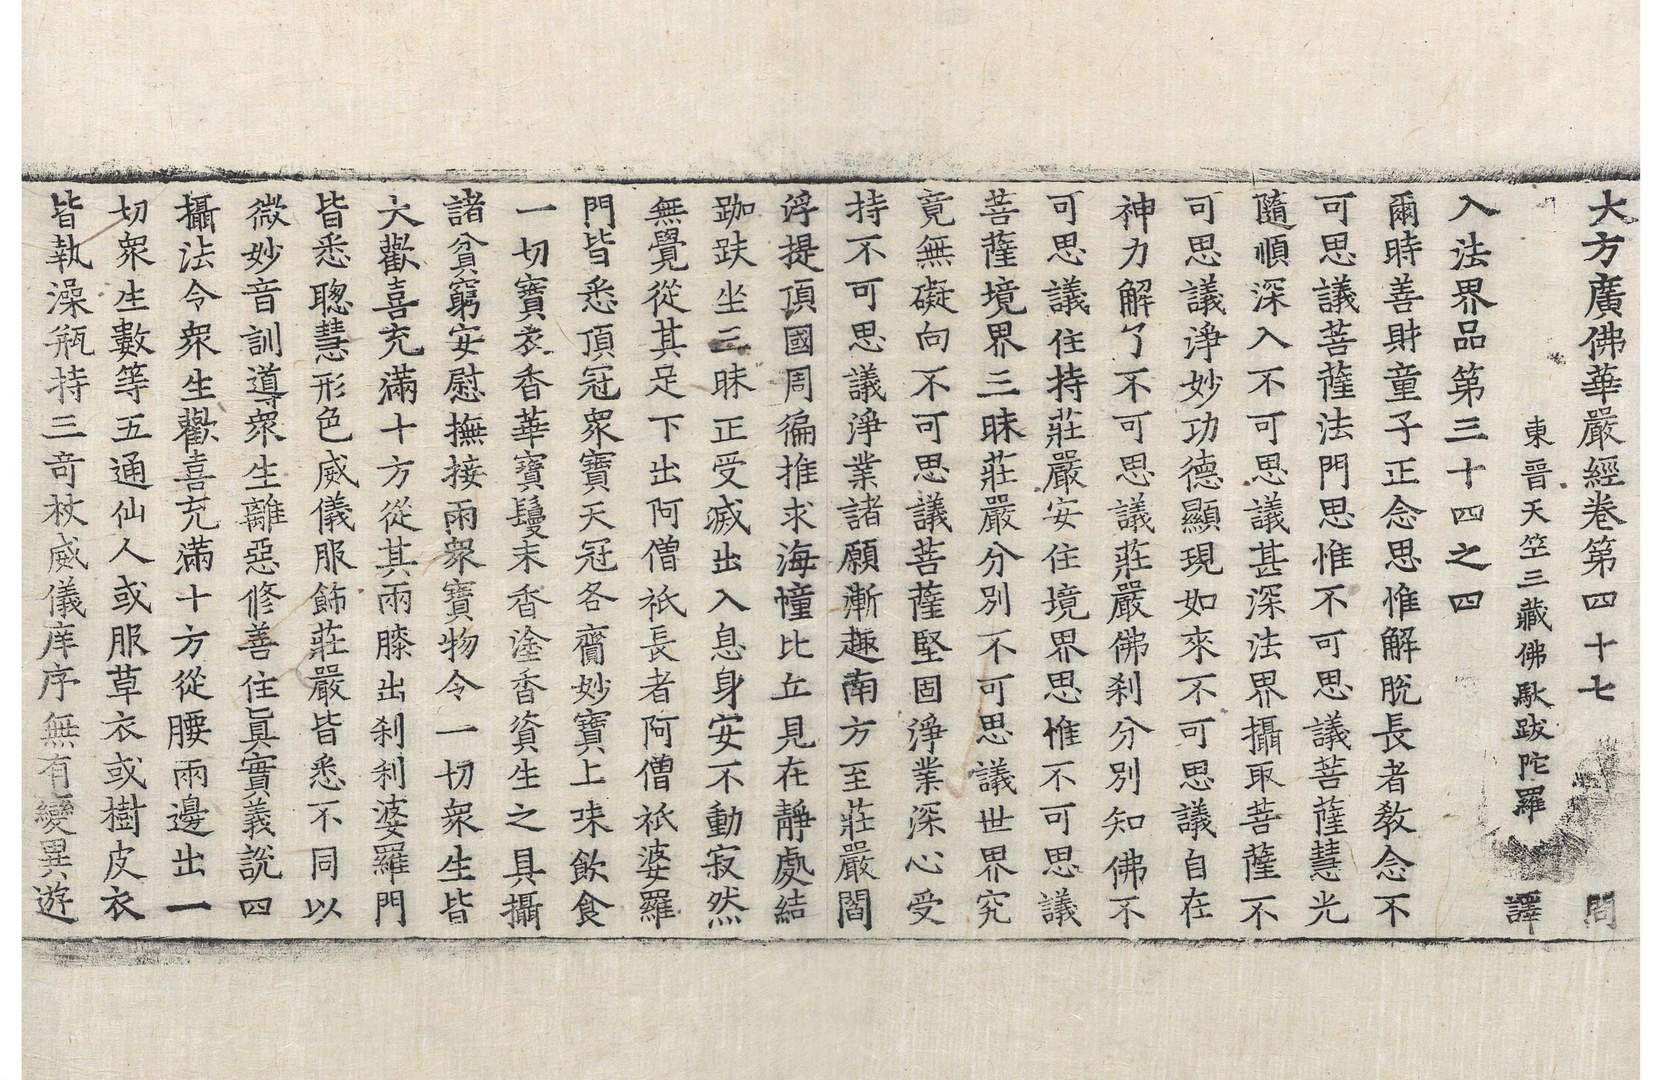 大方廣佛華嚴經卷第四十七 問
東晉天竺三藏佛馱跋陀羅 譯
入法界品第三十四之四
爾時善財童子正念思惟解脫長者教念不
可思議菩薩法門思惟不可思議菩薩慧光
隨順深入不可思議甚深法界攝取菩薩不
可思議淨妙功德顯現如來不可思議自在
神力解了不可思議莊嚴佛刹分別知佛不
可思議住持莊嚴安住境界思惟不可思議
菩薩境界三昧莊嚴分別不可思議世界究
竟無礙向不可思議菩薩堅固淨業深心受
持不可思議淨業諸願漸趣南方至莊嚴閻
浮提頂國周徧推求海幢比丘見在靜處結
跏趺坐三昧正受滅出入息身安不動寂然
無覺從其足下出阿僧祇長者阿僧祇婆羅
門皆悉頂冠衆寶天冠各齎妙寶上味飲食
一切寶衣香華寶鬘末香塗香資生之具攝
諸貧窮安慰撫接雨衆寶物令一切衆生皆
大歡喜充滿十方從其兩膝出刹利婆羅門
皆悉聰慧形色威儀服飾莊嚴皆悉不同以
微妙音訓導衆生離惡修善住眞實義說四
攝法令衆生歡喜充滿十方從腰兩邊出一
切衆生數等五通仙人或服草衣或樹皮衣
皆執澡瓶持三奇杖威儀庠序無有變異遊